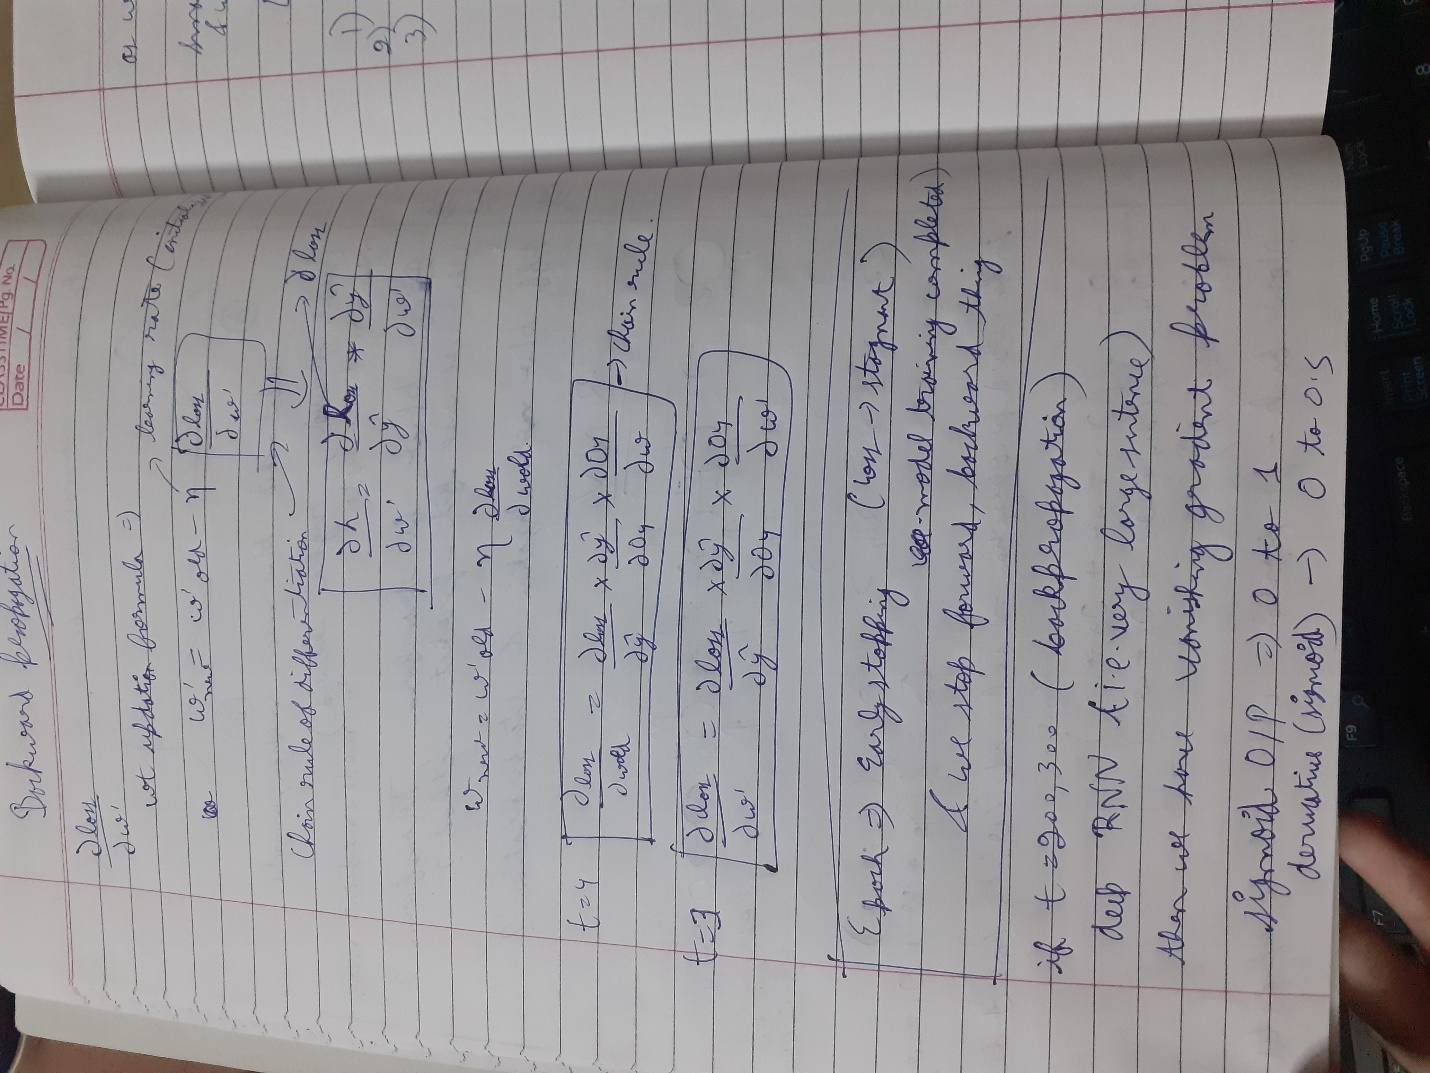 CLASSTIME/Pg. No.
Date / /
Backward propagation
∂loss/∂w'
wt updation formula =)
→ learning rate (
w'new = w'old - η ∂loss/∂w'
Chain rule of differentiation → ∂loss
∂h/∂w' = ∂loss/∂ŷ * ∂ŷ/∂w'
w'new = w'old - η ∂loss/∂wold.
t=4 ∂loss/∂wold = ∂loss/∂ŷ × ∂ŷ/∂O4 × ∂O4/∂w → chain rule.
t=3 ∂loss/∂w' = ∂loss/∂ŷ × ∂ŷ/∂O4 × ∂O4/∂w'
Epoch =) Early stopping (loss → stagnent)
model training completed)
& we stop forward, backward thing
if t = 200, 300 (backpropogation)
deep RNN (i.e. very large sentence)
then we have vanishing gradient problem
sigmoid O/P =) 0 to 1
derivative (sigmoid) → 0 to 0.5
or w
1)
2)
3)
Num Lock
PgUp
Pause Break
Home
Scroll Lock
Insert
Print Screen
Backspace
F9
F7
8